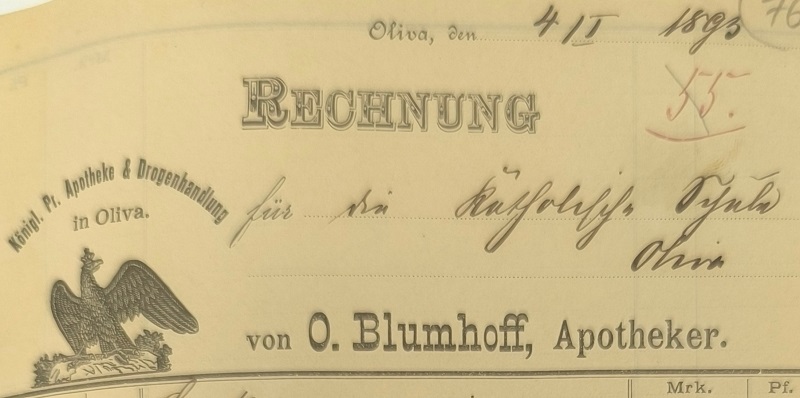 76
Oliva, den 4/I 1893
RECHNUNG
55.
Königl. Pr. Apotheke & Drogenhandlung
in Oliva.
für die katholische Schule
Oliva
von O. Blumhoff, Apotheker.
Mrk. Pf.